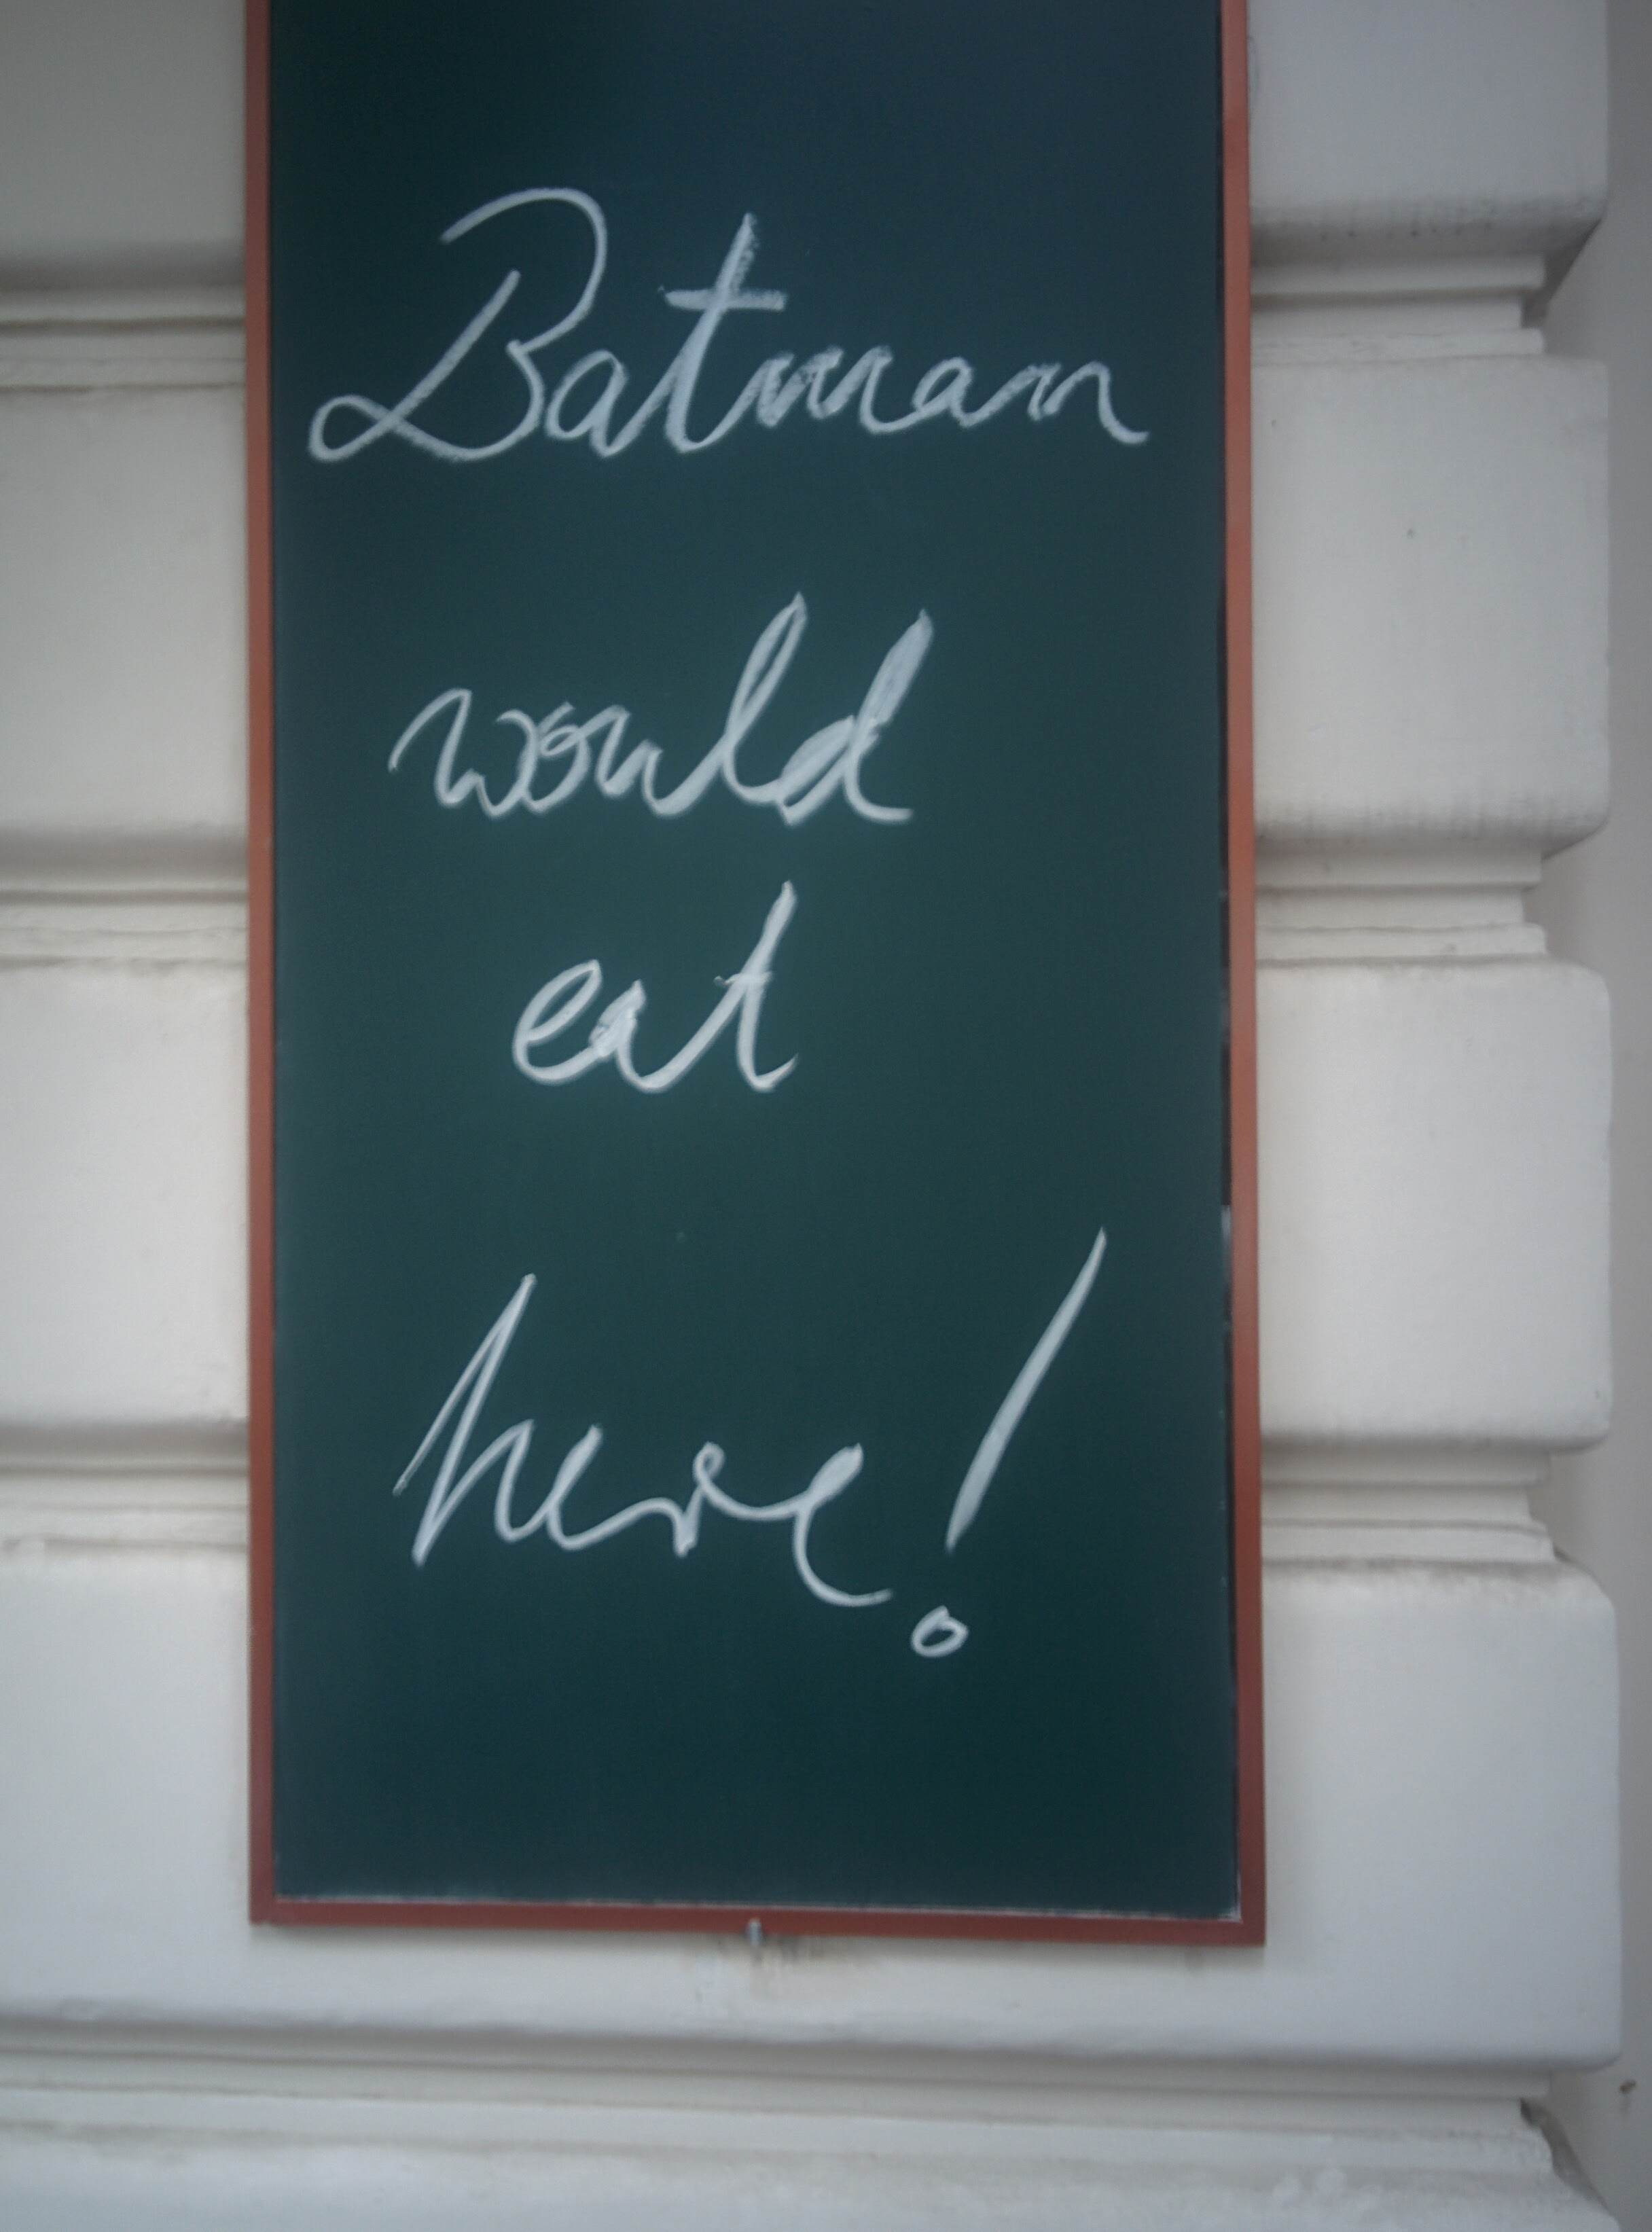 Batman
would
eat
here!